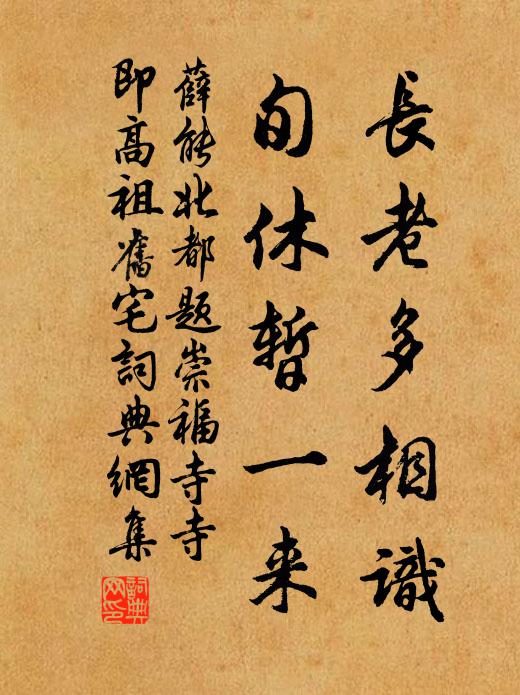 長老多相識
旬休暫一来
薛能北都題崇福寺寺
即高祖舊宅詞典網集
詞典
网印